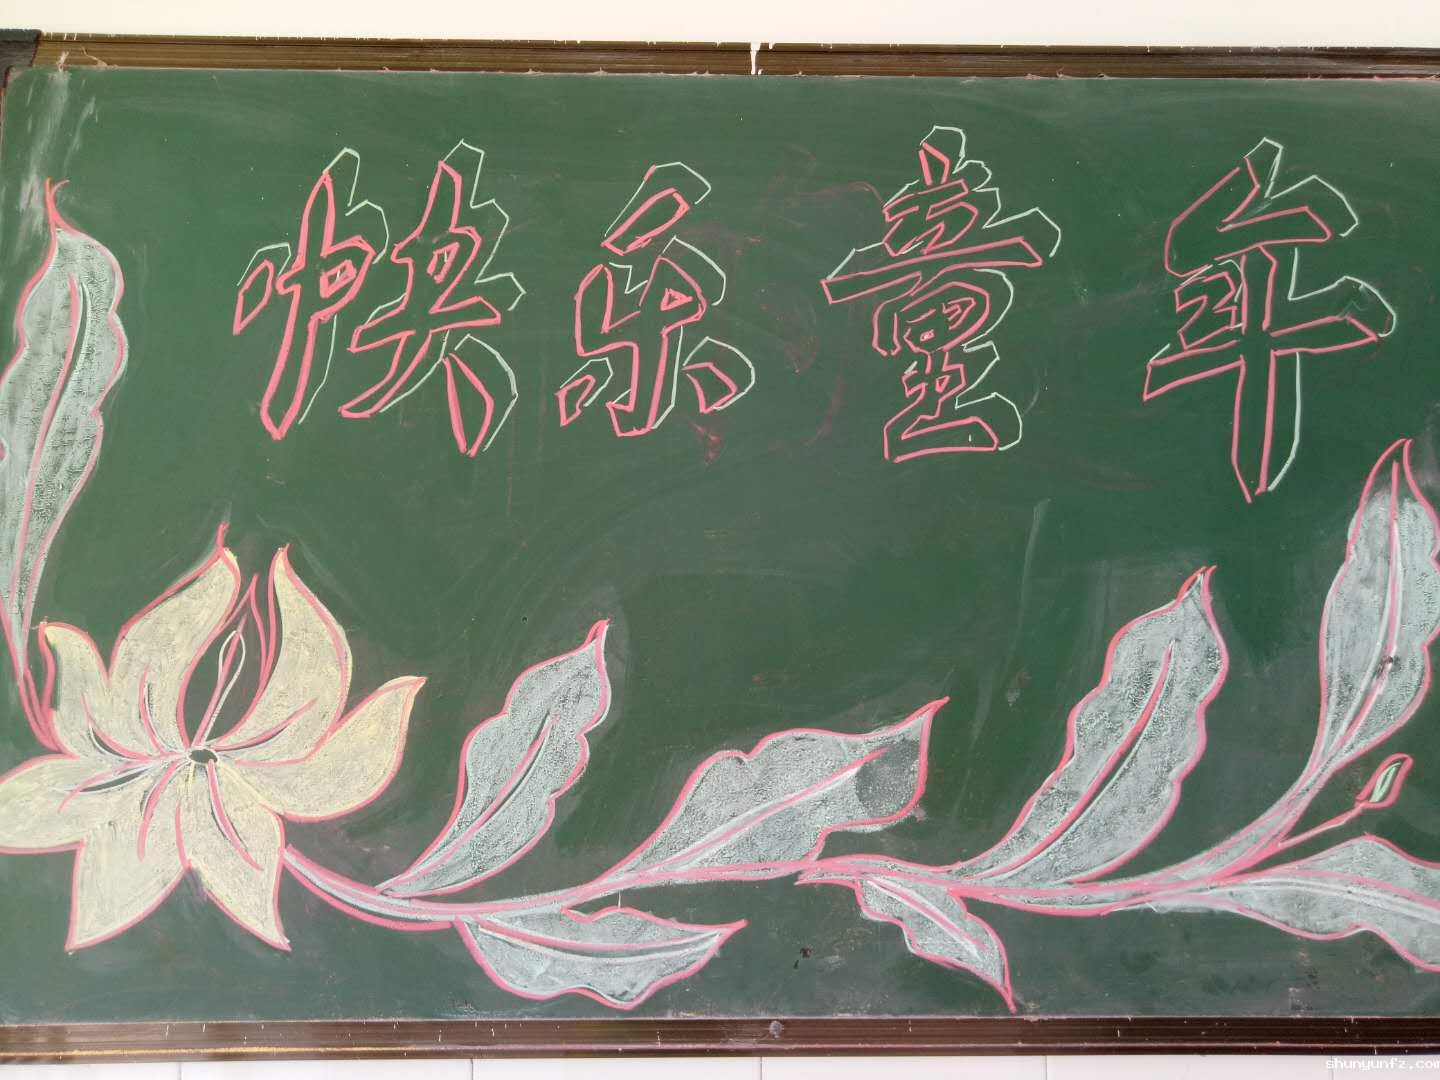 快乐童年
shunyunfz.com